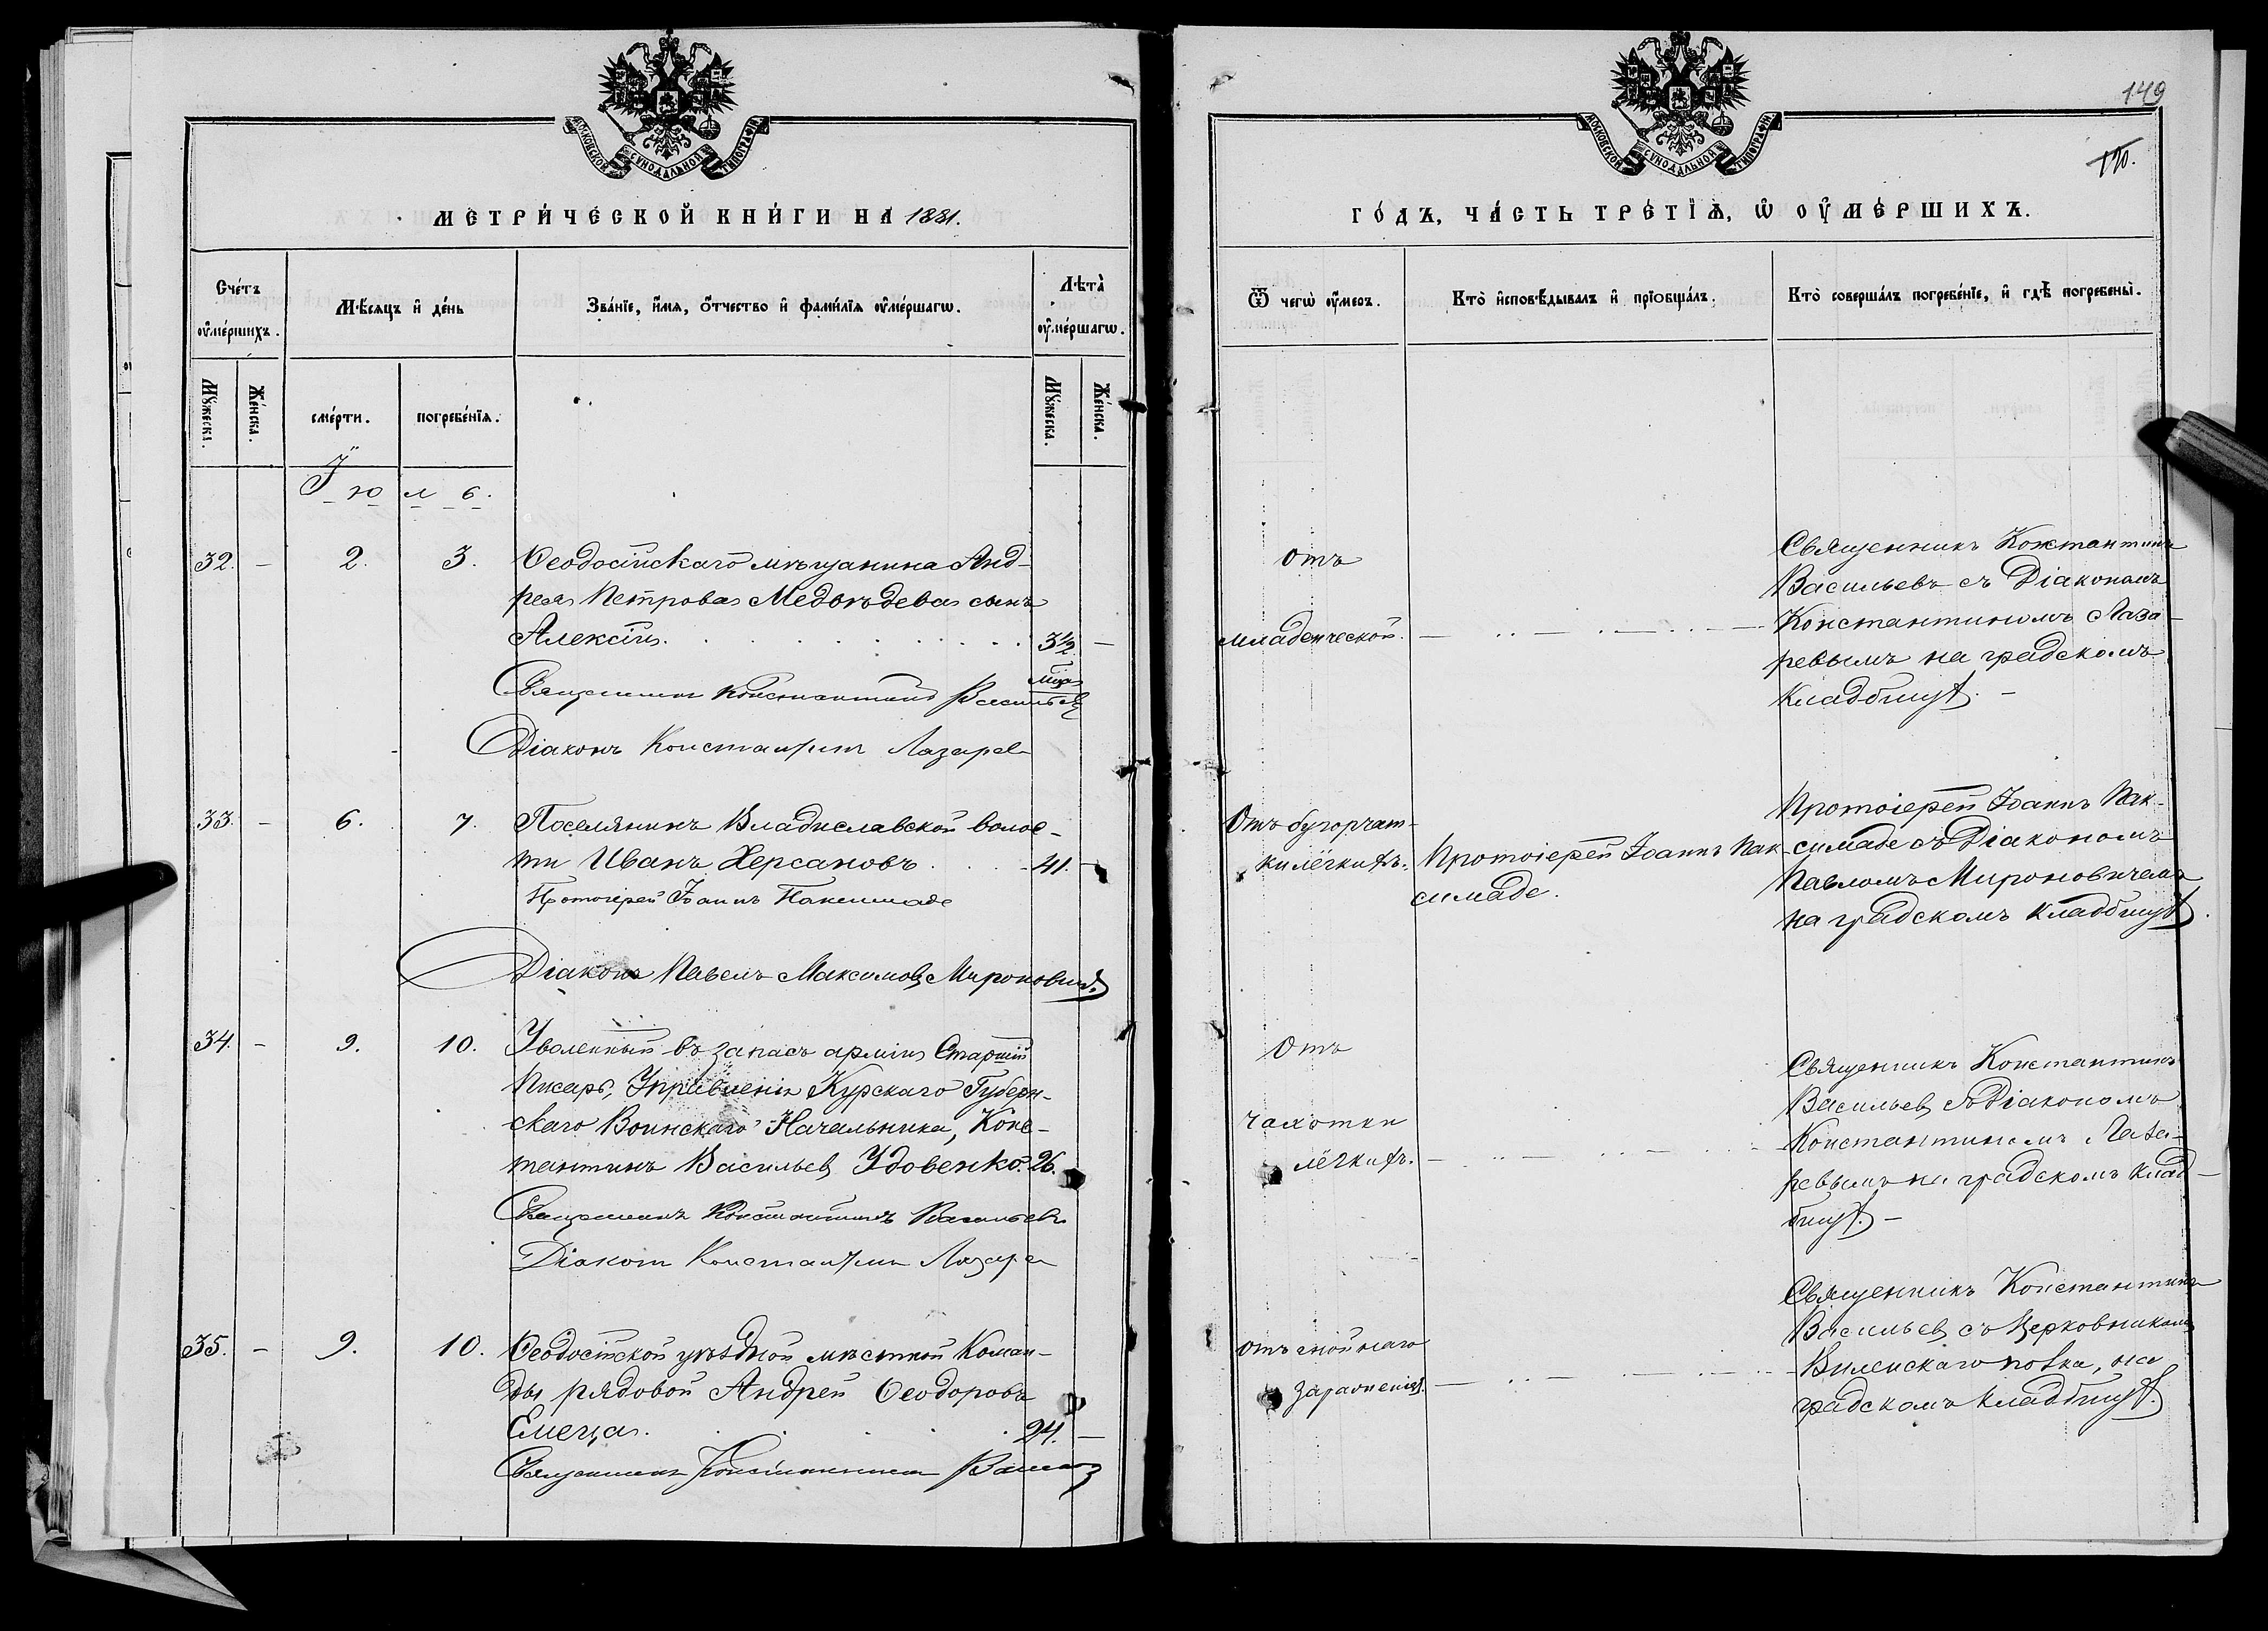 МОСКОВСКОЙ СѴНОДАЛЬНОЙ ТИПОГРАФІИ
МЕТРИ́ЧЕСКОЙ КНИ́ГИ НА 1881.
Сче́тъ ᲂумершихъ.
Мѣсяцъ и҆ де́нь
Зва́нїе, и҆́мя, ѻ҆́тчество и҆ фами́лїя ᲂумершагѡ.
Лѣта̀ ᲂуме́ршагѡ.
Мꙋ́жеска.
Же́нска.
сме́рти.
погребе́нїя.
Мꙋ́жеска.
Же́нска.
Іюль.
32. - 2. 3. Ѳеодосійскаго мѣщанина Анд-
рея Петрова Медвѣдева сынъ
Алексій. 3½ -
Мѣс.
Священникъ Константинъ Васильевъ
Діаконъ Константинъ Лазаревъ
33. - 6. 7. Поселянинъ Владиславской волос-
ти Иванъ Херсановъ 41. -
Протоіерей Іоаннъ Паксимаде
Діаконъ Павелъ Максимовъ Мироновичъ.
34. - 9. 10. Уволенный въ запасъ арміи Старшій
Писарь, Управленія Курскаго Губерн-
скаго Воинскаго Начальника, Конс-
тантинъ Васильевъ Удовенко. 26.
Священникъ Константинъ Васильевъ
Діаконъ Константинъ Лазаревъ
35. - 9. 10. Ѳеодосійской уѣздной мѣстной Коман-
ды рядовой Андрей Ѳеодоровъ
Емеца. 24. -
Священникъ Константинъ Васильевъ
149
170.
МОСКОВСКОЙ СѴНОДАЛЬНОЙ ТИПОГРАФІИ
ГО́ДЪ, ЧА́СТЬ ТРЕ́ТІѦ, Ѡ҆ ОУ҆МЕ́РШИХЪ.
Ѿ чегѡ̀ ᲂу҆́меръ.
Кто̀ и҆сповѣ́дывалъ и҆ прїѡбща́лъ.
Кто̀ соверша́лъ погребе́нїе, и҆ гдѣ̀ погребены̀.
Отъ
младенческой.
Священникъ Константинъ
Васильевъ съ Діакономъ
Константиномъ Лаза-
ревымъ на градскомъ
кладбищѣ. -
Отъ бугорчат-
ки лёгкихъ.
Протоіерей Іоаннъ Пак-
симаде.
Протоіерей Іоаннъ Пак-
симаде съ Діакономъ
Павломъ Мироновичемъ
на градскомъ кладбищѣ.
Отъ
чахотки
лёгкихъ.
Священникъ Константинъ
Васильевъ съ Діакономъ
Константиномъ Лаза-
ревымъ на градскомъ клад-
бищѣ. -
Отъ гнойнаго
зараженія.
Священникъ Константинъ
Васильевъ съ Церковникомъ
Виленскаго полка, на
градскомъ кладбищѣ.